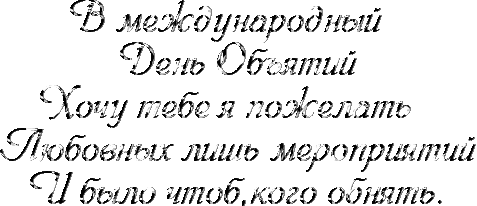 В международный
День Объятий
Хочу тебе я пожелать
Любовных лишь мероприятий
И было чтоб,кого обнять.